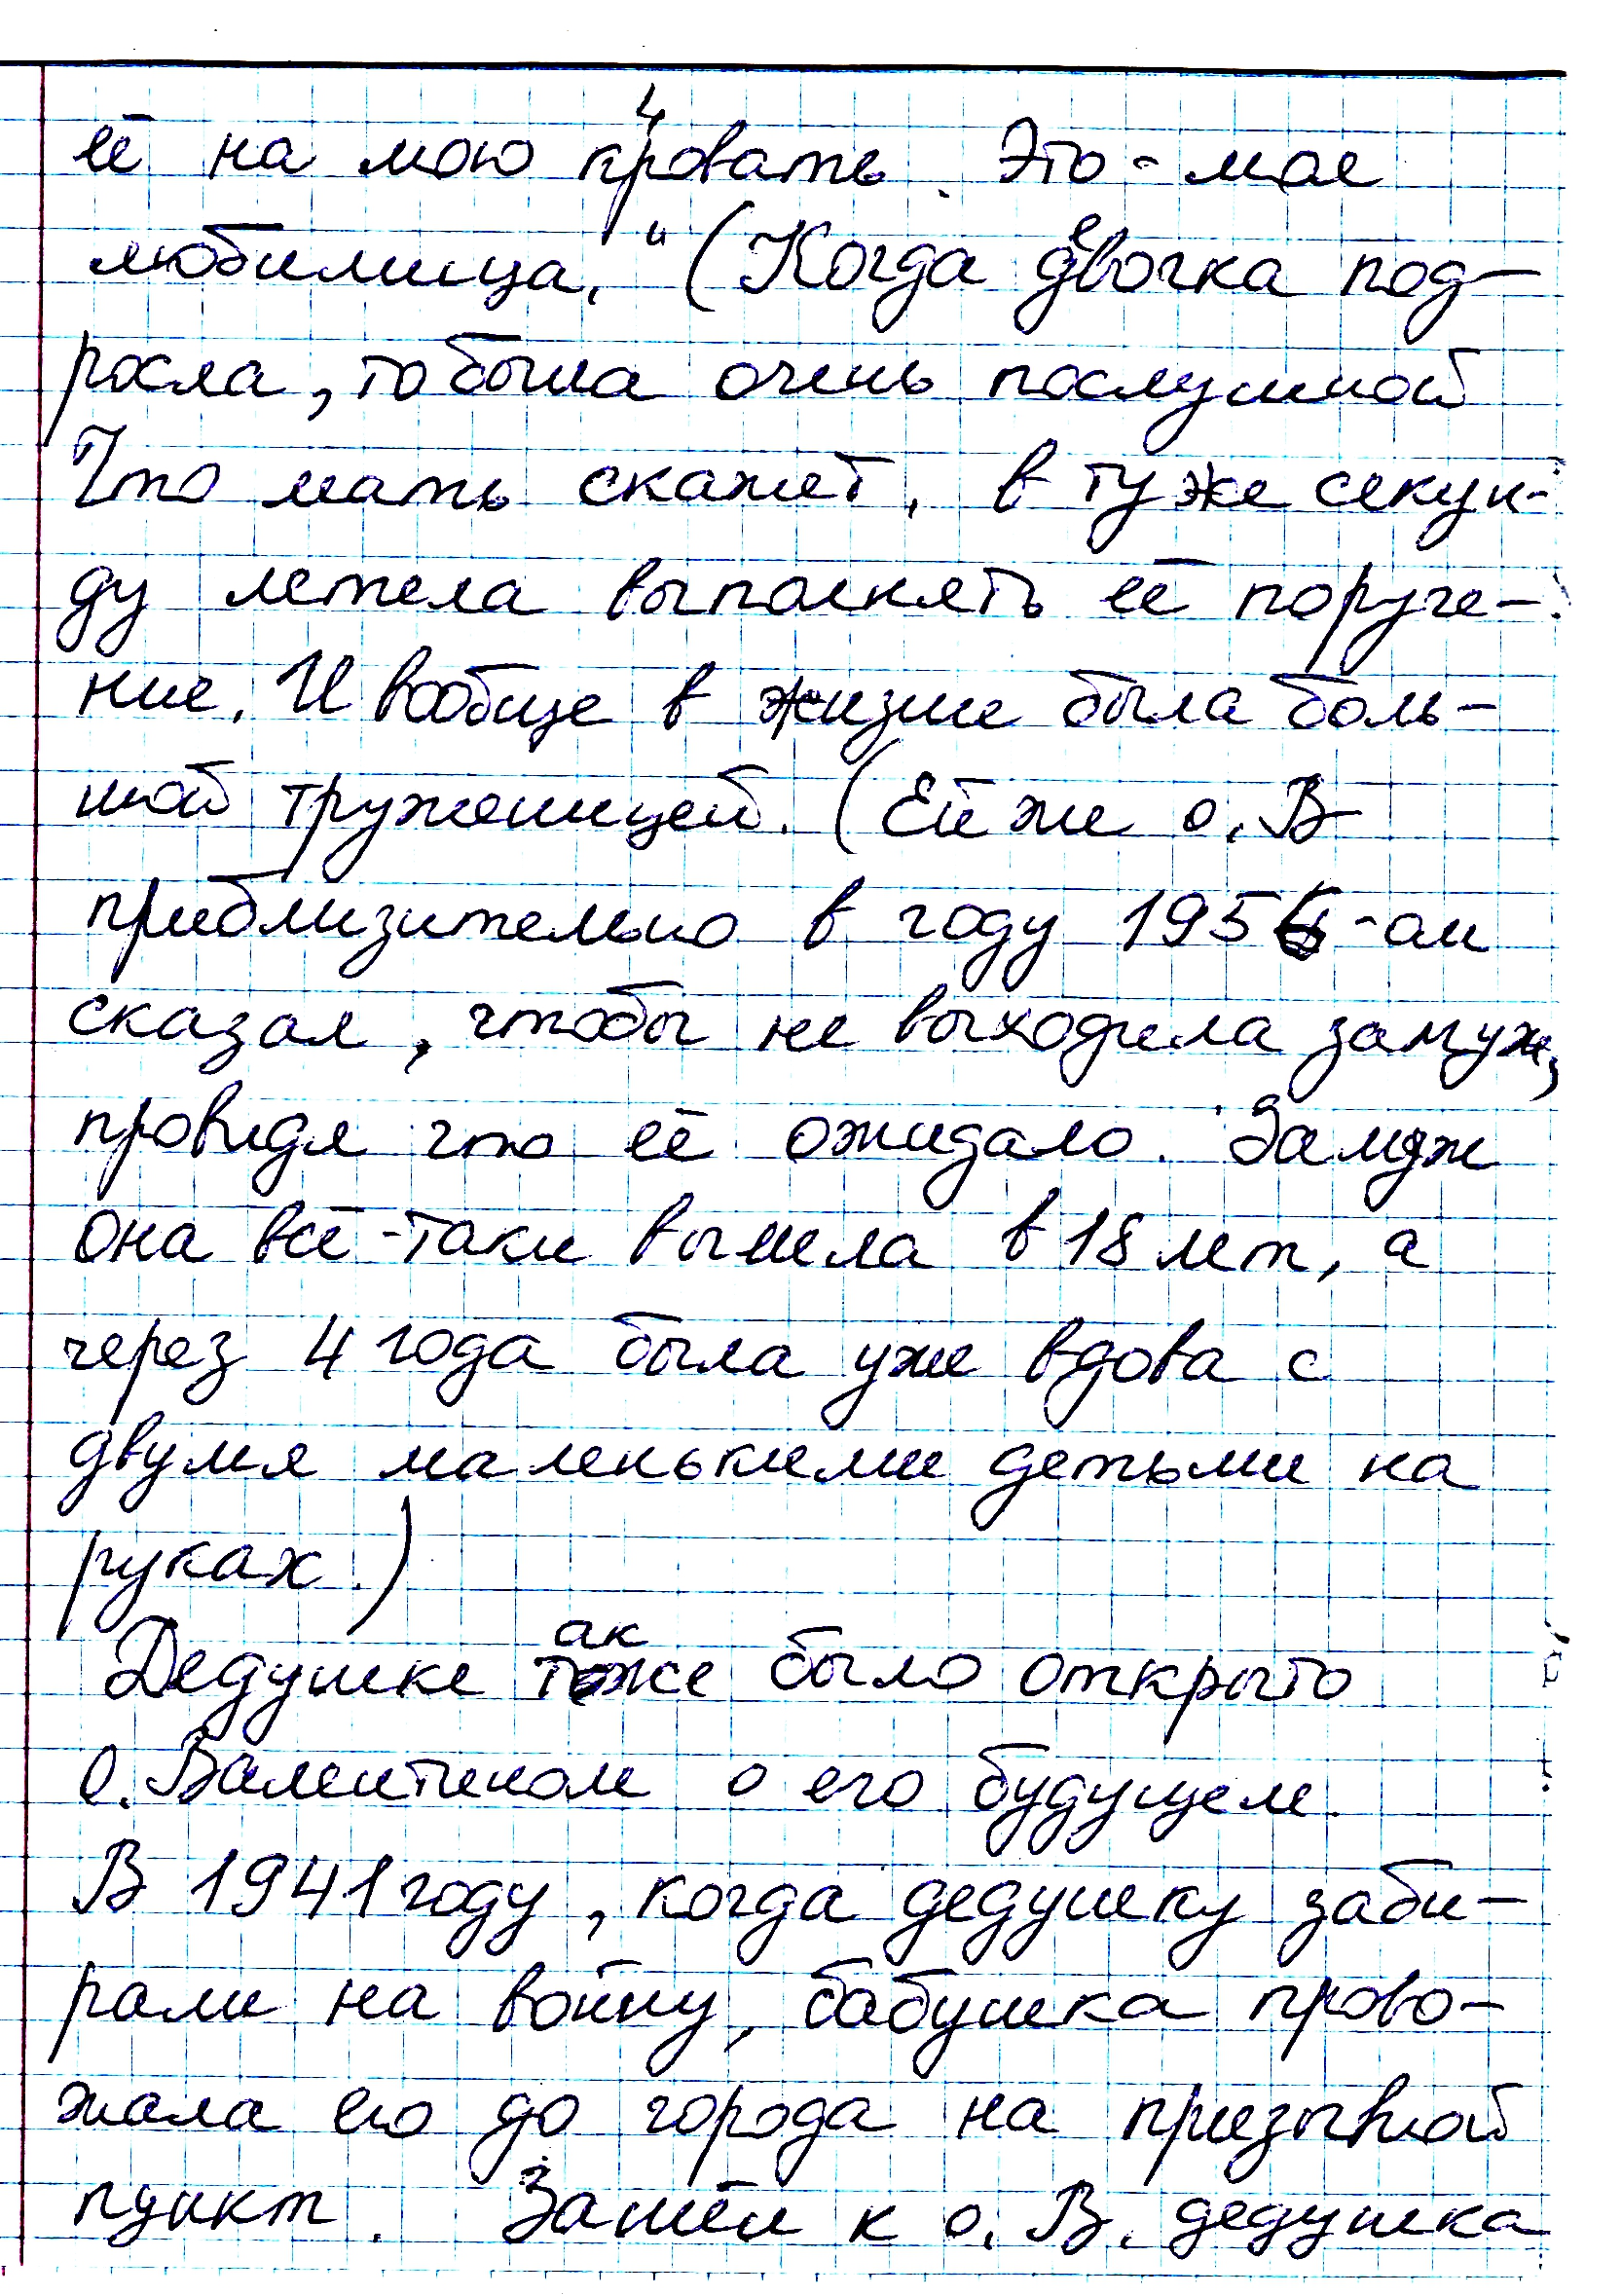 4
её на мою кровать. Это - моя
любимица." (Когда девочка под-
росла, то была очень послушной
Что мать скажет, в ту же секун-
ду летела выполнять её поруче-
ние. И вообще в жизни была боль-
шой труженицей. (Ей же о. В
приблизительно в году 1956-ом
сказал, чтобы не выходила замуж,
провидя что её ожидало. Замуж
она всё-таки вышла в 18 лет, а
через 4 года была уже вдова с
двумя маленькими детьми на
руках.)
Дедушке также было открыто
о. Валентином о его будущем.
В 1941 году, когда дедушку заби-
рали на войну, бабушка прово-
жала его до города на призывной
пункт. Зашёл к о. В. дедушка